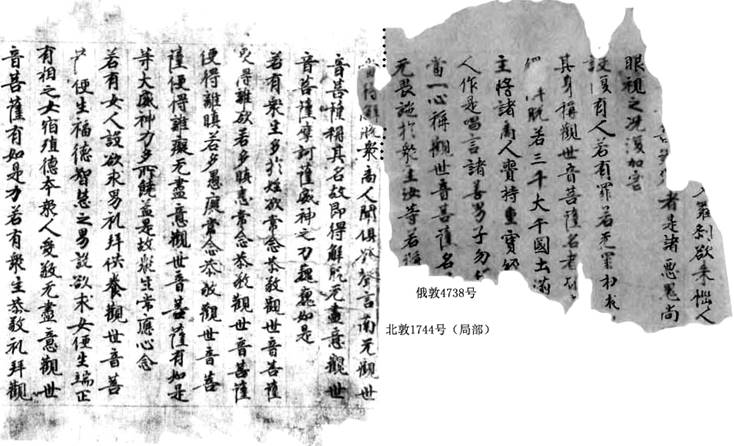 刹欲来惱人
者是諸惡鬼尚
眼視之况復加害
設復有人若有罪若无罪杻
其身稱觀世音菩薩名者
脱若三千大千國土滿
主將諸商人賷持重寶經
人作是唱言諸善男子勿
當一心稱觀世音菩薩名
无畏施於衆生汝等若稱
當得解脱衆商人聞俱發聲言南无觀世
音菩薩稱其名故即得解脱无盡意觀世
音菩薩摩訶薩威神之力巍巍如是
若有衆生多於婬欲常念恭敬觀世音菩薩
便得離欲若多瞋恚常念恭敬觀世音菩薩
便得離瞋若多愚癡常念恭敬觀世音菩
薩便得離癡无盡意觀世音菩薩有如是
等大威神力多所饒益是故衆生常應心念
若有女人設欲求男礼拜供養觀世音菩
便生福德智慧之男設欲求女便生端正
有相之女宿殖德本衆人愛敬无盡意觀世
音菩薩有如是力若有衆生恭敬礼拜觀
俄敦4738号
北敦1744号（局部）